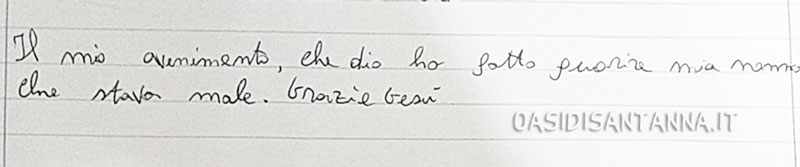 Il mio avenimento, che dio ho fatto guarire mia nonna
che stava male. Grazie Gesù
OASIDISANTANNA.IT